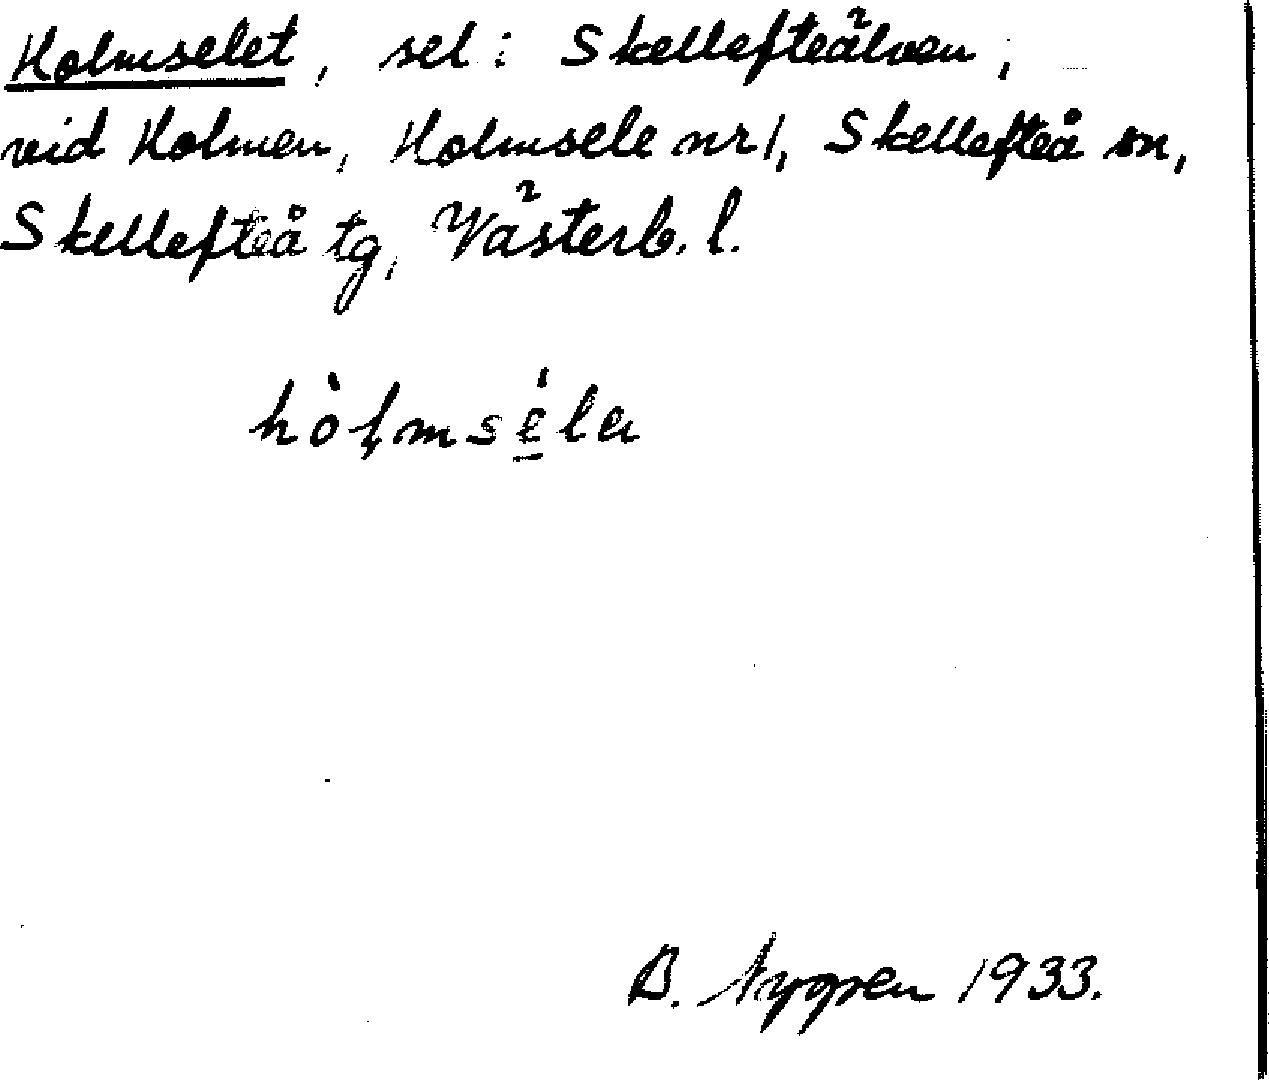 Holmselet, sel i Skellefteälven,
vid Holmen, Holmsele nr 1, Skellefteå sn,
Skellefteå tg, Västerb. l.
hòlmsela
B. Nygren 1933.